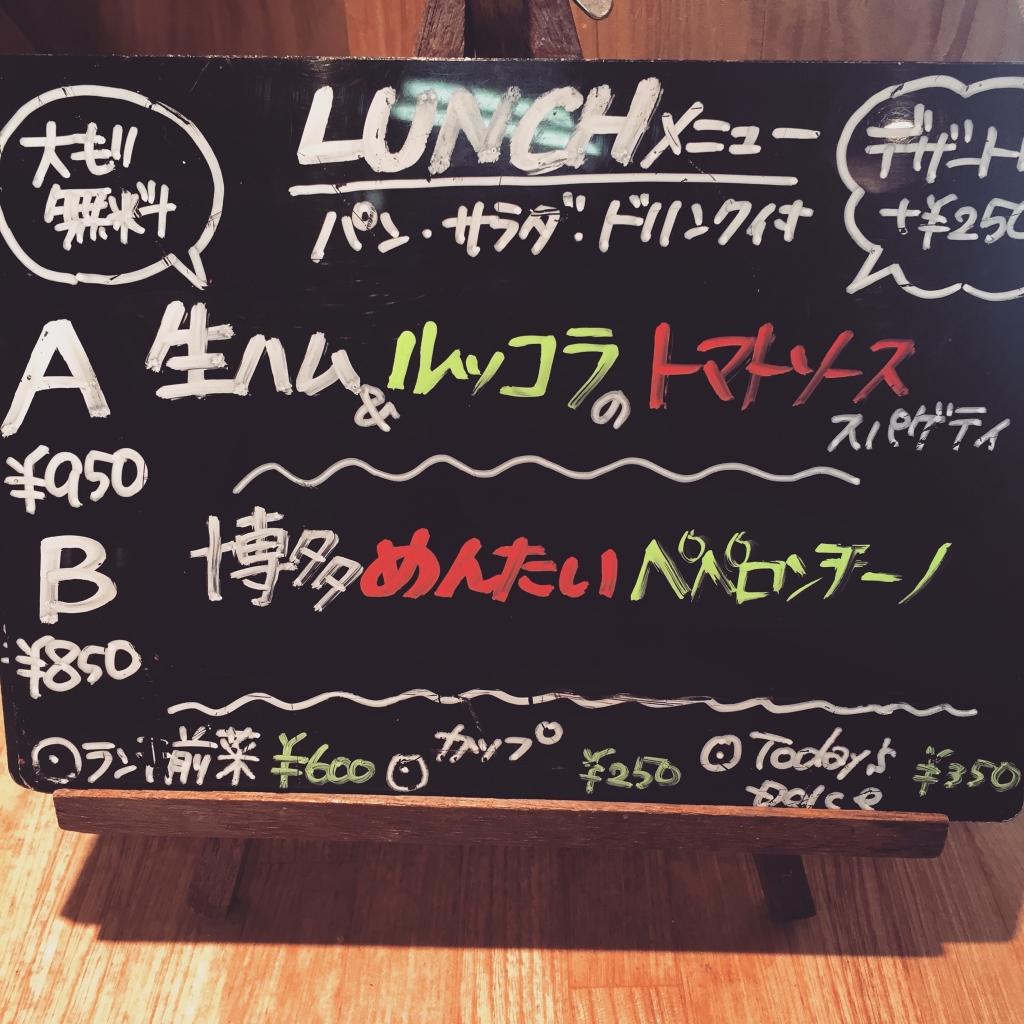 大もり
無料
LUNCHメニュー
パン・サラダ・ドリンク付
デザート
+¥250
A 生ハム&ルッコラのトマトソース
スパゲティ
¥950
B 博多めんたいペペロンチーノ
¥850
◎ランチ前菜 ¥600
◎カップ ¥250
◎Today's
Dolce
¥350